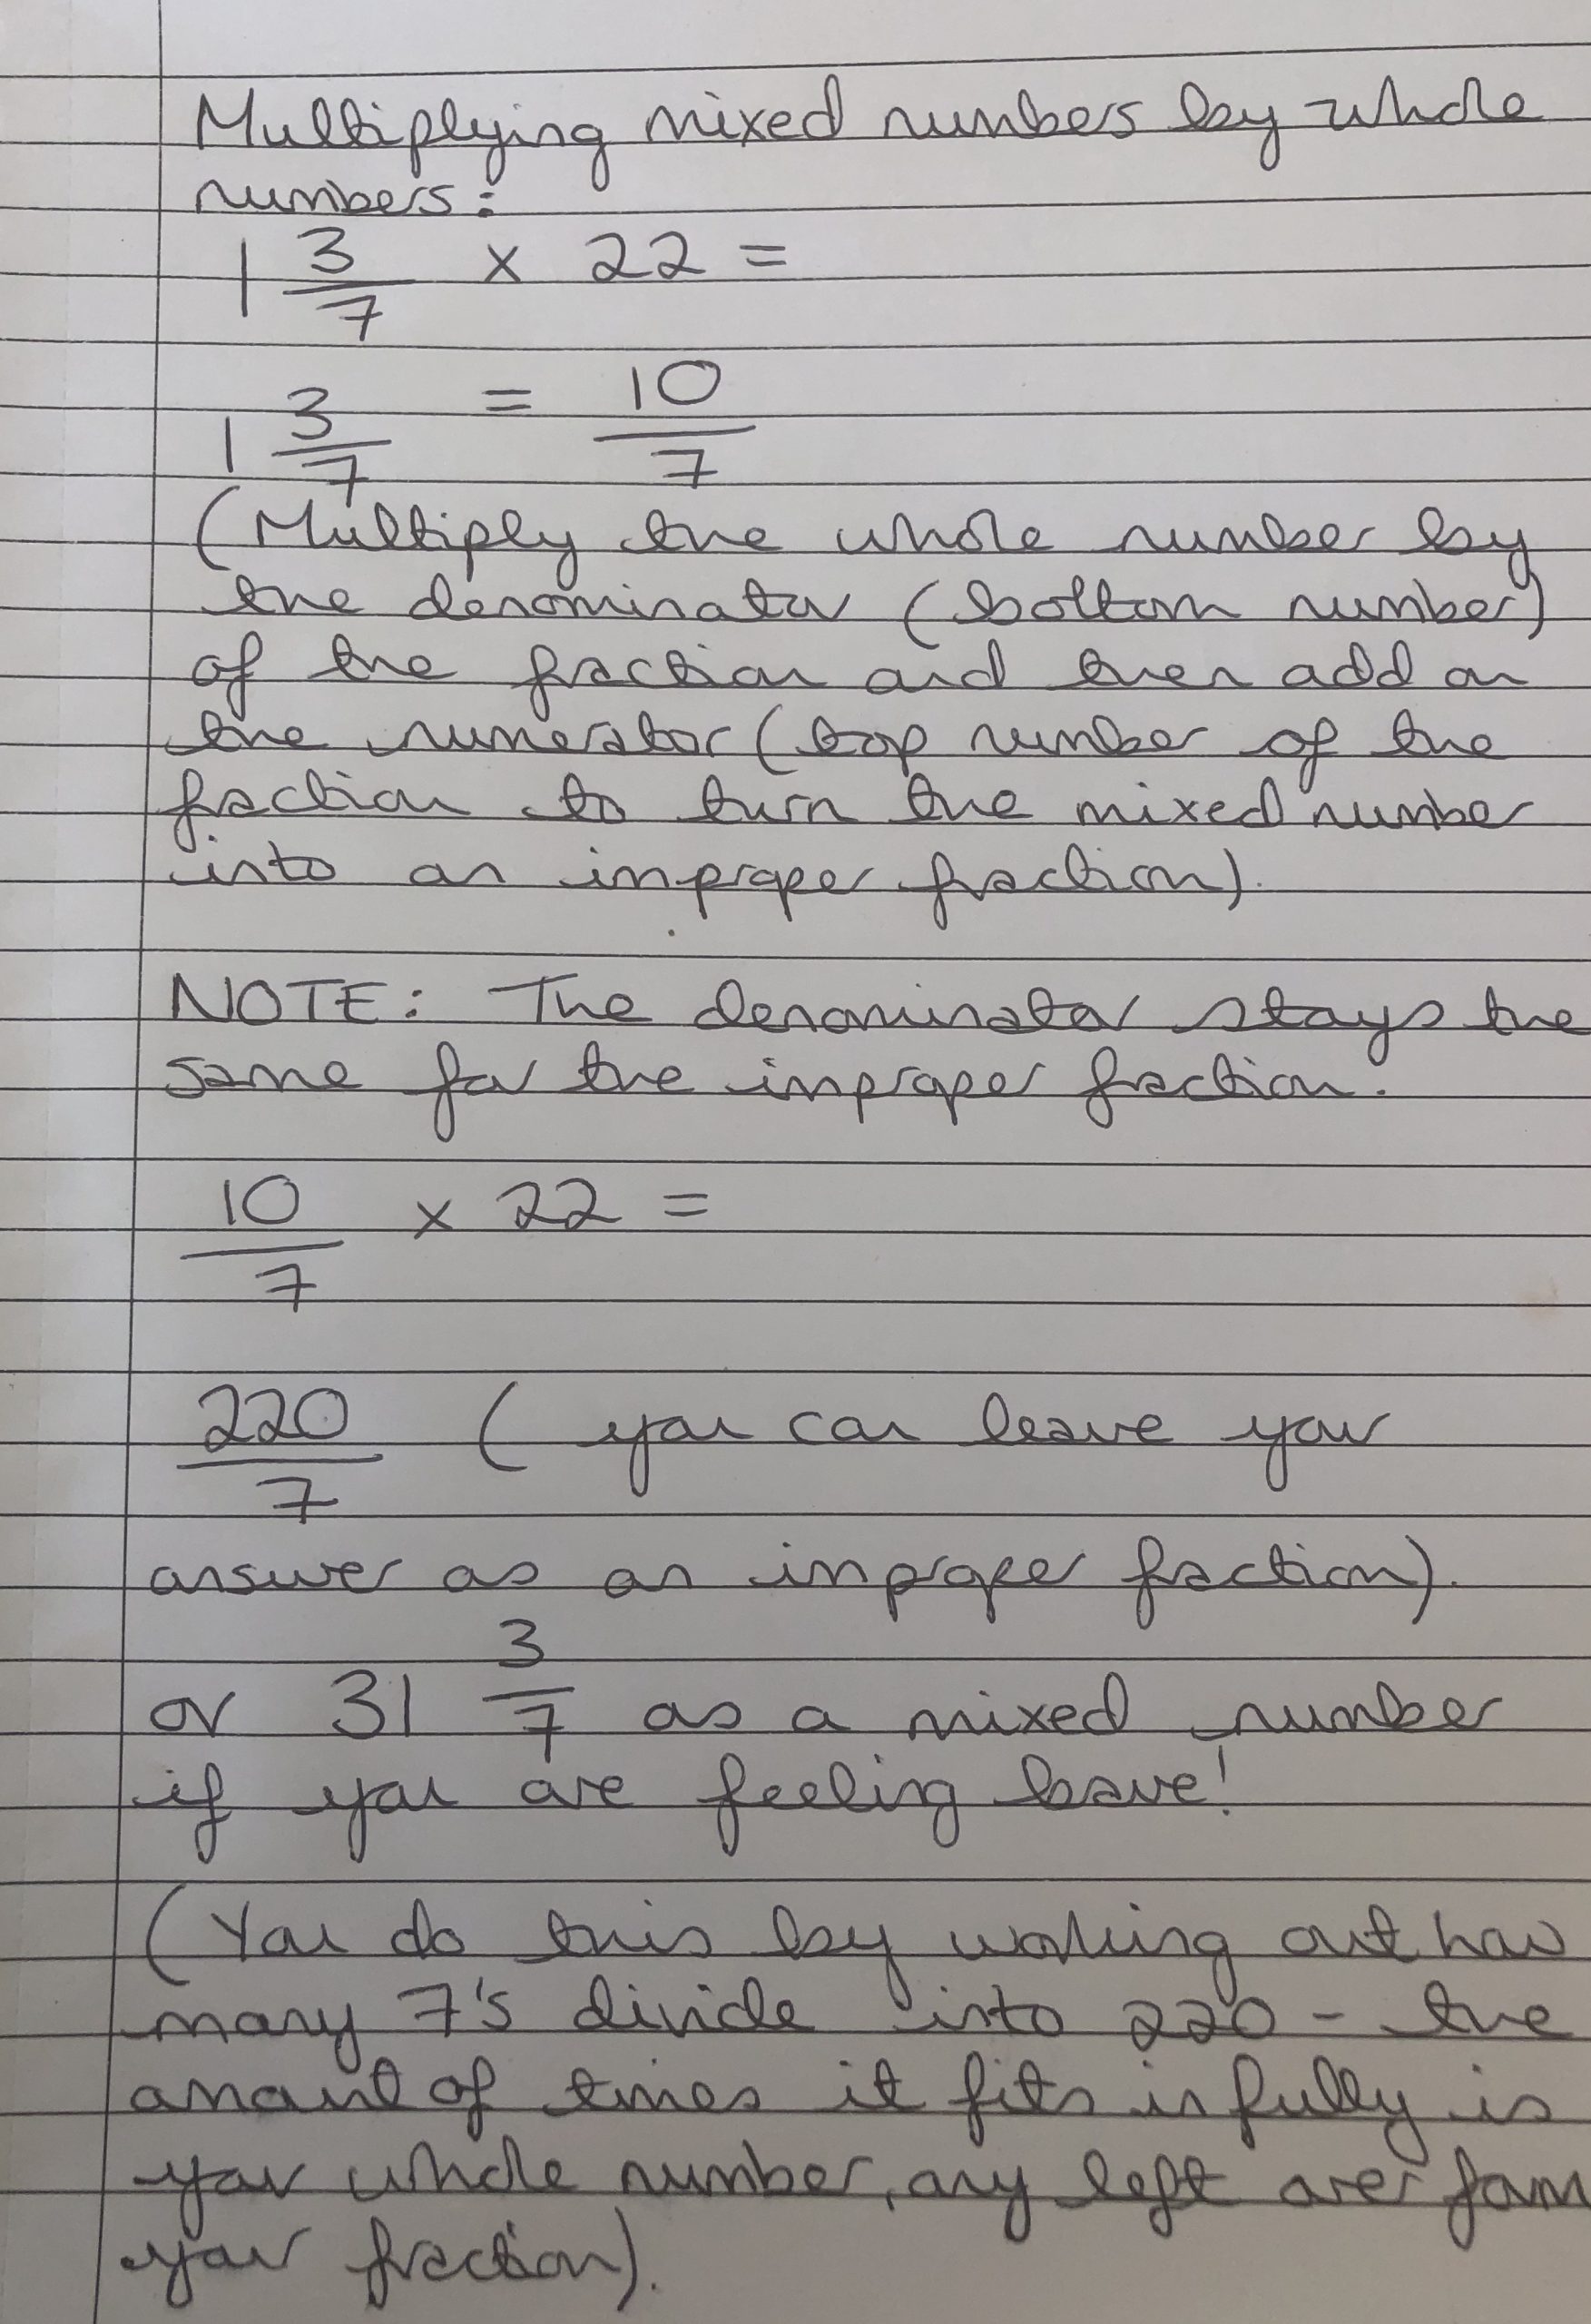 Multiplying mixed numbers by whole
numbers:
1 3/7 × 22 =
1 3/7 = 10/7
(Multiply the whole number by
the denominator (bottom number)
of the fraction and then add on
the numerator (top number of the
fraction to turn the mixed number
into an improper fraction).
NOTE: The denominator stays the
same for the improper fraction.
10/7 × 22 =
220/7 (you can leave your
answer as an improper fraction).
or 31 3/7 as a mixed number
if you are feeling brave!
(You do this by working out how
many 7's divide into 220 - the
amount of times it fits in fully is
your whole number, any left over form
your fraction).